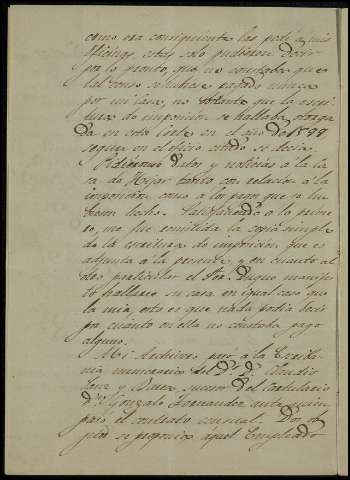 como era consiguiente los pedí a mis
oficinas estas solo pudieron decir
por lo pronto, que no constaba que
tal censo se hubiese pagado nunca
por mi casa, no obstante que la escri
tura de imposicion se hallaba otorga
da en esta corte en el año de
segun en el oficio citado se decia.
Pidieronse datos y noticias a la ca
sa de Hijar tanto con relacion á la
imposicion como á los pagos que se hu
biesen hecho. Satisfaciendo á lo prime
ro, me fue remitida la copia simple
de la escritura de imposicion que es
adjunta a la presente, y en cuanto al
otro particular el Sor. Duque manifes
tó hallarse su casa en igual caso que
la mia, esto es que nada podia decir
por cuanto en ella no constaba pago
alguno.
Mi Archivero pasó a la Escriba
nía numeraria del Dr. Dn. Claudio
Sanz y Barea, sucesor del
de Gonzalo Fernandez ante quien
pasó el contrato censual. Dos ob
jetos se proponia aquel Empleado